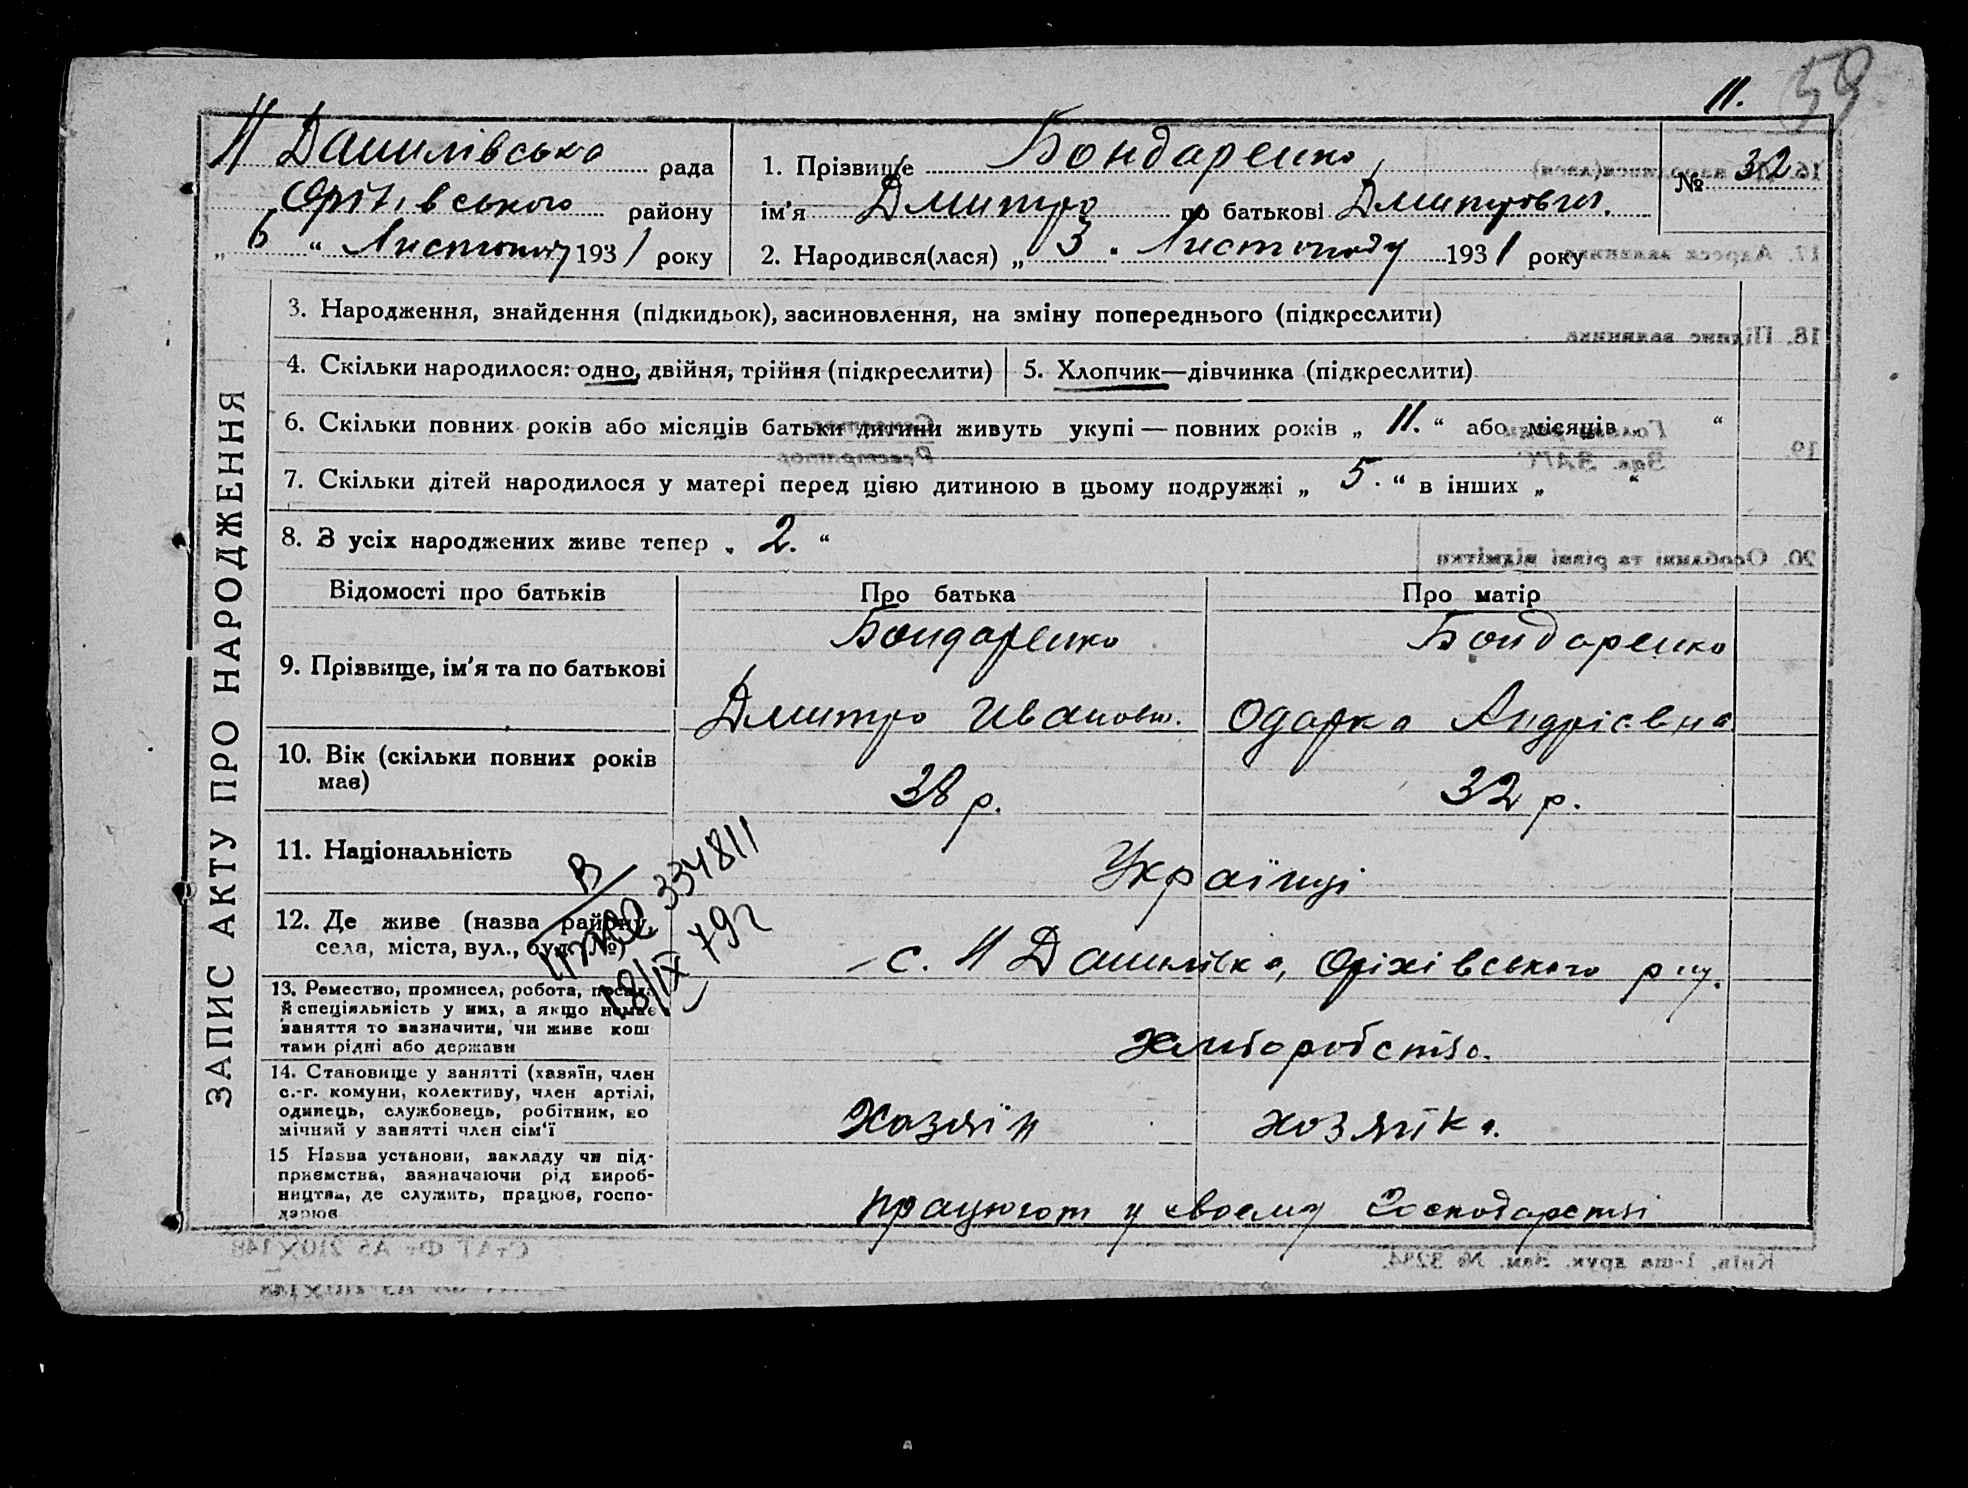 11. 59
Н Данилівська рада
Оріхівського району
„ 6 “ Листопаду 1931 року
1. Прізвище Бондаренко
ім'я Дмитро по батькові Дмитрович.
№ 32
2. Народився(лася) „ 3 “ Листопаду 1931 року
ЗАПИС АКТУ ПРО НАРОДЖЕННЯ
3. Народження, знайдення (підкидьок), засиновлення, на зміну попереднього (підкреслити)
4. Скільки народилося: одно, двійня, трійня (підкреслити) 5. Хлопчик—дівчинка (підкреслити)
6. Скільки повних років або місяців батьки дитини живуть укупі — повних років „ 11. “ або місяців „ “
7. Скільки дітей народилося у матері перед цією дитиною в цьому подружжі „ 5. “ в інших „ “
8. З усіх народжених живе тепер „ 2. “
Відомості про батьків Про батька Про матір
9. Прізвище, ім'я та по батькові
Бондаренко Бондаренко
Дмитро Иванов. Одарка Андрієвна
10. Вік (скільки повних років
має)
38 р. 32 р.
11. Національність
Українці
12. Де живе (назва району,
села, міста, вул., буд. №)
с. Н Данилівка, Оріхівського р-ну.
13. Ремество, промисел, робота, посада
й спеціяльність у них, а якщо немає
заняття то зазначити, чи живе кош
тами рідні або держави
Хліборобство.
14. Становище у занятті (хазяїн, член
с.-г. комуни, колективу, член артілі,
одинець, службовець, робітник, по
мічний у занятті член сім'ї
Хазяїн хозяїка.
15 Назва установи, закладу чи під-
приємства, зазначаючи рід вироб-
ництва, де служить, працює, госпо-
дарює
працюют у своему господарстві
334811
18/IX 79г
Київ, 1-ша друк. Зам. № 3234.
СтАТ Фт А5 210×148
16.
17. Адреса заявника
18. Підпис заявника
19.
20. Особливі та різні відмітки